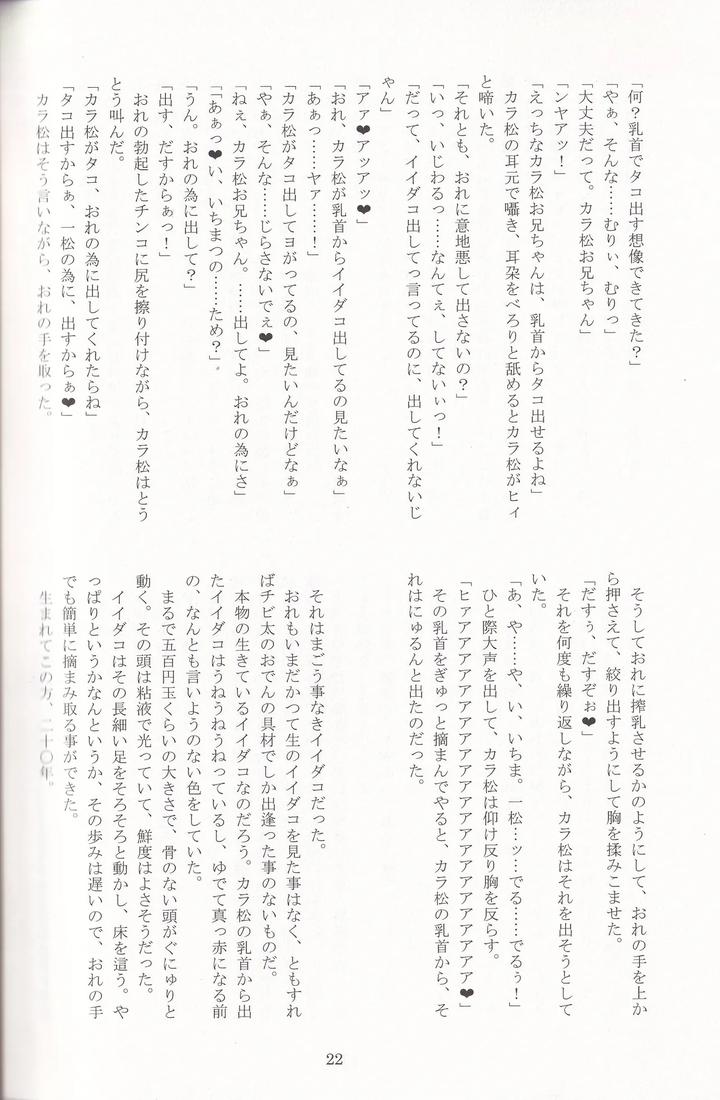 「何？乳首でタコ出す想像できてきた？」
「やぁ、そんな……むりぃ、むりっ」
「大丈夫だって。カラ松お兄ちゃん」
「ンヤアッ！」
「えっちなカラ松お兄ちゃんは、乳首からタコ出せるよね」
　カラ松の耳元で囁き、耳朶をべろりと舐めるとカラ松がヒィ
と啼いた。
「それとも、おれに意地悪して出さないの？」
「いっ、いじわるっ……なんてぇ、してないぃっ！」
「だって、イイダコ出してって言ってるのに、出してくれないじ
ゃん」
「アァ❤アッアッ❤」
「おれ、カラ松が乳首からイイダコ出してるの見たいなぁ」
「あぁっ……ヤァ……！」
「カラ松がタコ出してヨがってるの、見たいんだけどなぁ」
「やぁ、そんな……じらさないでぇ❤」
「ねぇ、カラ松お兄ちゃん。……出してよ。おれの為にさ」
「あぁっ❤い、いちまつの……ため？」
「うん。おれの為に出して？」
「出す、だすからぁっ！」
　おれの勃起したチンコに尻を擦り付けながら、カラ松はとう
とう叫んだ。
「カラ松がタコ、おれの為に出してくれたらね」
「タコ出すからぁ、一松の為に、出すからぁ❤」
　カラ松はそう言いながら、おれの手を取った。
　そうしておれに搾乳させるかのようにして、おれの手を上か
ら押さえて、絞り出すようにして胸を揉みこませた。
「だすぅ、だすぞぉ❤」
　それを何度も繰り返しながら、カラ松はそれを出そうとして
いた。
「あ、や……や、い、いちま。一松…ッ…でる……でるぅ！」
　ひと際大声を出して、カラ松は仰け反り胸を反らす。
「ヒァアアアアアアアアアアアアアアアアアアアア❤」
　その乳首をぎゅっと摘まんでやると、カラ松の乳首から、そ
れはにゅるんと出たのだった。
　それはまごう事なきイイダコだった。
　おれもいまだかつて生のイイダコを見た事はなく、ともすれ
ばチビ太のおでんの具材でしか出逢った事のないものだ。
　本物の生きているイイダコなのだろう。カラ松の乳首から出
たイイダコはうねうねうねっているし、ゆでて真っ赤になる前
の、なんとも言いようのない色をしていた。
　まるで五百円玉くらいの大きさで、骨のない頭がぐにゅりと
動く。その頭は粘液で光っていて、鮮度はよさそうだった。
　イイダコはその長細い足をそろそろと動かし、床を這う。や
っぱりというかなんというか、その歩みは遅いので、おれの手
でも簡単に摘まみ取る事ができた。
　生まれてこの方、二十〇年。
22